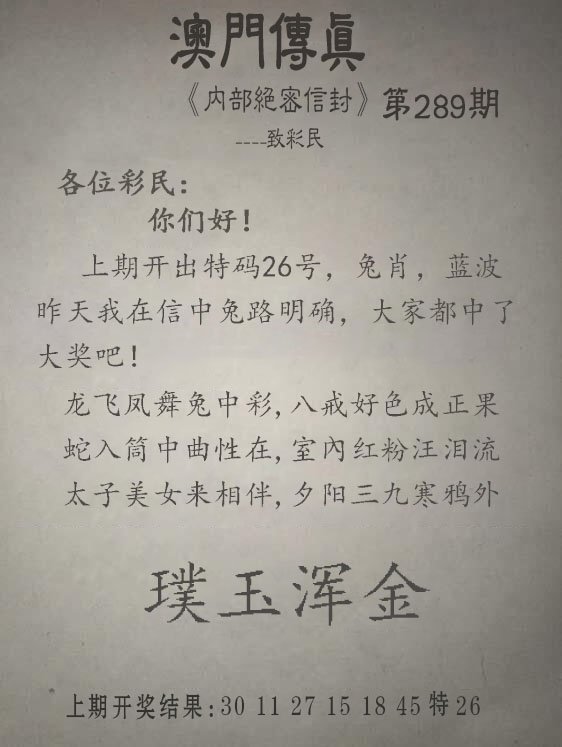 澳門傳眞
《内部絕密信封》第289期
----致彩民
各位彩民:
你们好!
上期开出特码26号，兔肖，蓝波
昨天我在信中兔路明确，大家都中了
大奖吧!
龙飞凤舞兔中彩,八戒好色成正果
蛇入筒中曲性在,室內红粉汪泪流
太子美女来相伴,夕阳三九寒鸦外
璞玉浑金
上期开奖结果:30 11 27 15 18 45特26